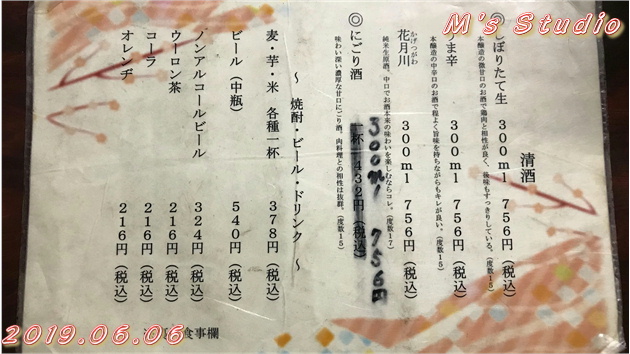 M's Studio
清酒
しぼりたて生 300ml 756円(税込)
本醸造の微甘口のお酒で鶏肉と相性が良く、後味もすっきりしている。(度数15)
うま辛 300ml 756円(税込)
本醸造の中辛口のお酒で程よく旨味を持ちながらもキレが良い。(度数15)
かげつがわ
花月川 300ml 756円(税込)
純米生原酒、中口でお酒本来の味わいを楽しむならコレ。(度数17)
300ml 756円
◎にごり酒 一杯 432円(税込)
味わい深い濃厚な甘口にごり酒。肉料理との相性は抜群。(度数15)
~ 焼酎・ビール・ドリンク ~
麦・芋・米 各種一杯 378円(税込)
ビール(中瓶) 540円(税込)
ノンアルコールビール 324円(税込)
ウーロン茶 216円(税込)
コーラ 216円(税込)
オレンヂ 216円(税込)
食事欄
2019.06.06